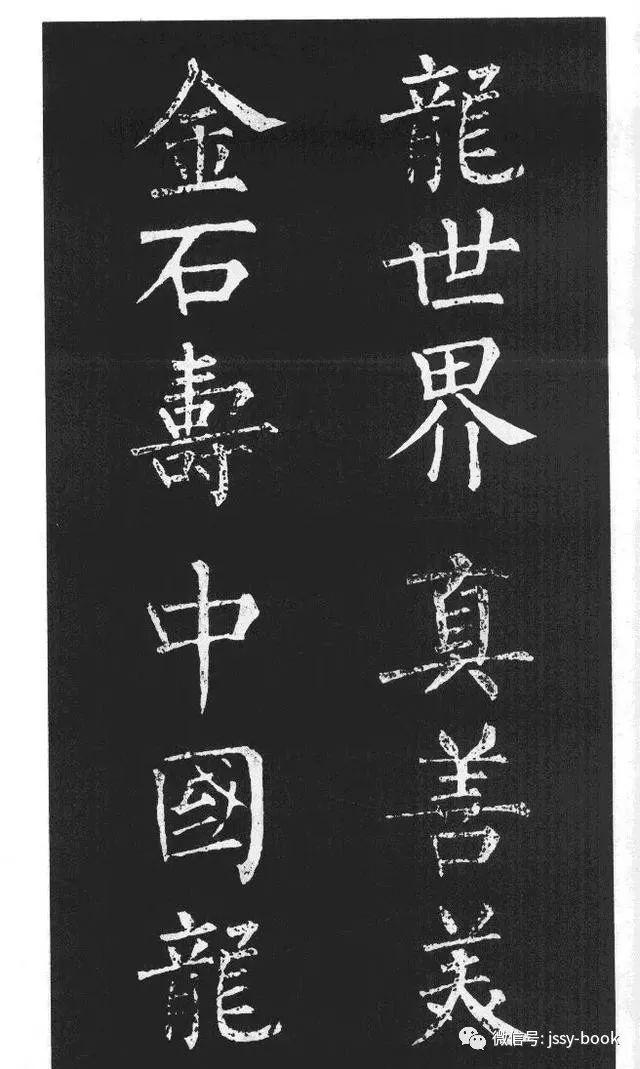 龍世界真善美
金石壽中國龍
微信号: jssy-book